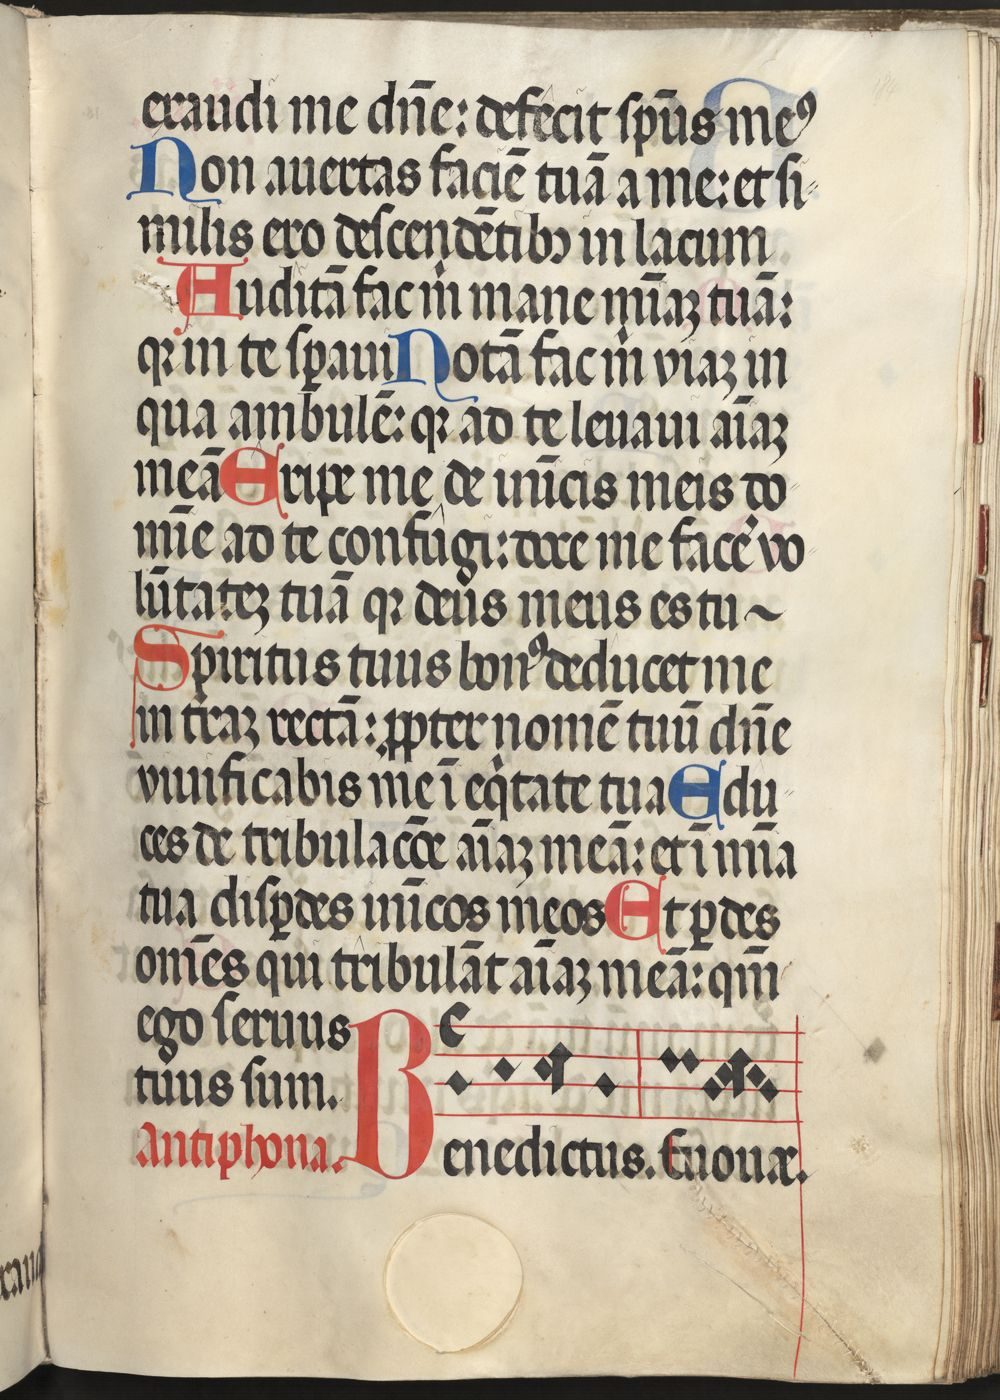 exaudi me dn̄e: defecit sp̄us meꝰ
Non auertas faciē tuā a me: et si-
milis ero descendētibꝫ in lacum
Auditā fac m̄ mane mīaꝫ tuā:
qꝛ in te sꝑaui Notā fac m̄ viaꝫ in
qua ambulē: qꝛ ad te leuaui aīaꝫ
meā Eripe me de inīcis meis do-
mīe ad te confugi: doce me facē vo-
lūtateꝫ tuā qꝛ deus meus es tu ~
Spiritus tuus bonꝰ deducet me
in t̄raꝫ rectā: ꝓpter nomē tuū dn̄e
viuificabis me ī eq̄tate tua Edu-
ces de tribulacōe aīaꝫ meā: et ī mīa
tua disꝑdes inīcos meos Et ꝑdes
om̄es qui tribulāt aīaꝫ meā: qm̄
ego seruus
tuus sum.
Antiphona.
Benedictus. Euouae.